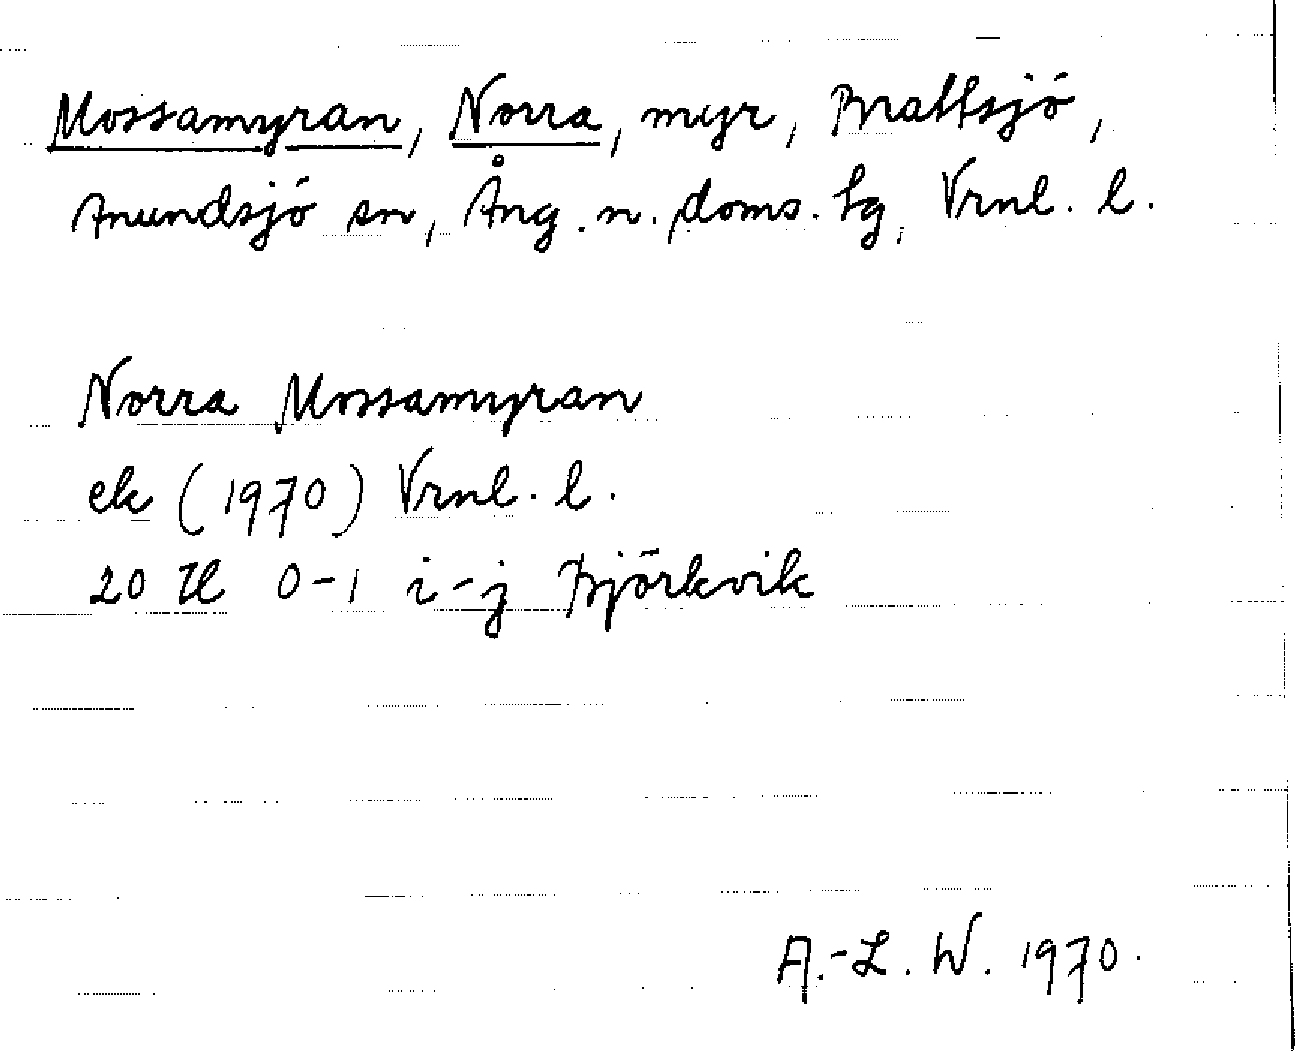 Mossamyran, Norra, myr, Brattsjö,
Anundsjö sn, Ång. n. doms. tg, Vrnl. l.
Norra Mossamyran
ek (1970) Vrnl. l.
20 H 0-1 i-j Björkvik
A.-L. W. 1970.